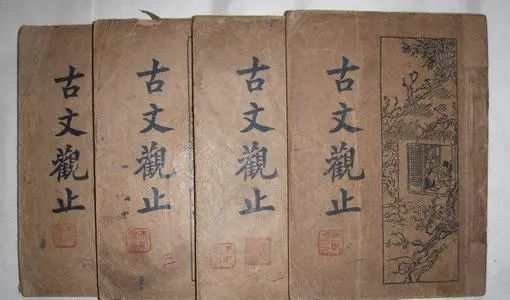 古文觀止
古文觀止
三
古文觀止
二
古文觀止
一